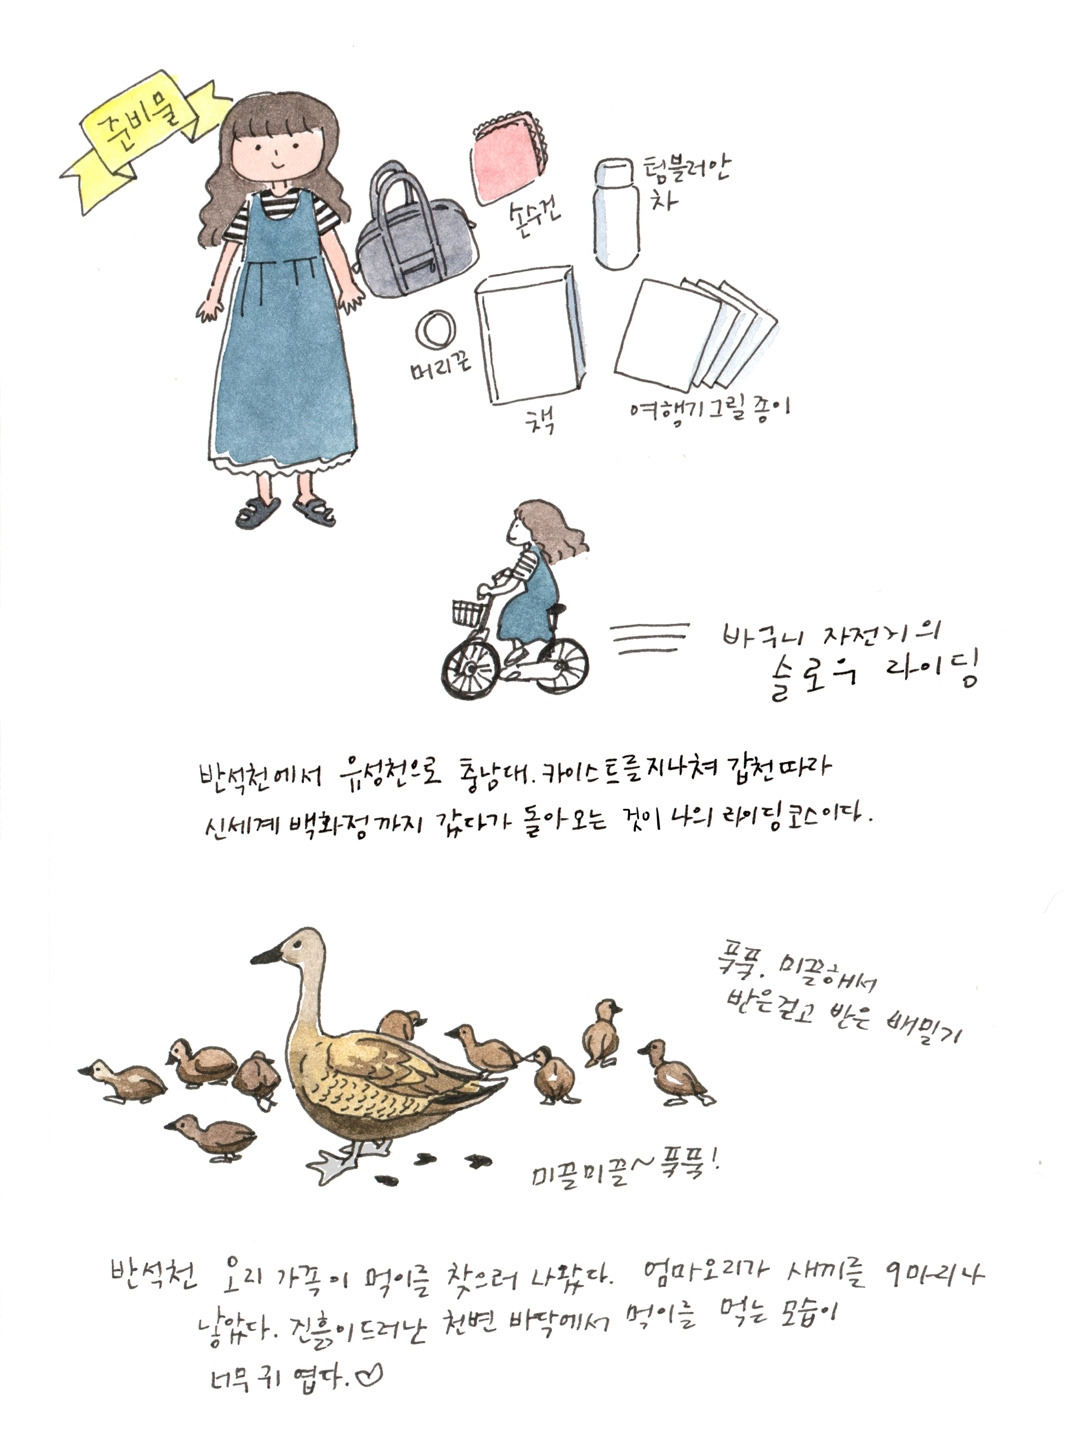 준비물
손수건
텀블러안
차
머리끈
책
여행기그릴종이
바구니 자전거의
슬로우 라이딩
반석천에서 유성천으로 충남대. 카이스트를지나쳐 갑천따라
신세계백화점까지 갔다가 돌아오는 것이 나의 라이딩코스이다.
푹푹. 미끌해서
반은걷고 반은 배밀기
미끌미끌~푹푹!
반석천 오리 가족이 먹이를 찾으러 나왔다. 엄마오리가 새끼를 9마리나
낳았다. 진흙이드러난 천변 바닥에서 먹이를 먹는 모습이
너무 귀엽다.♡